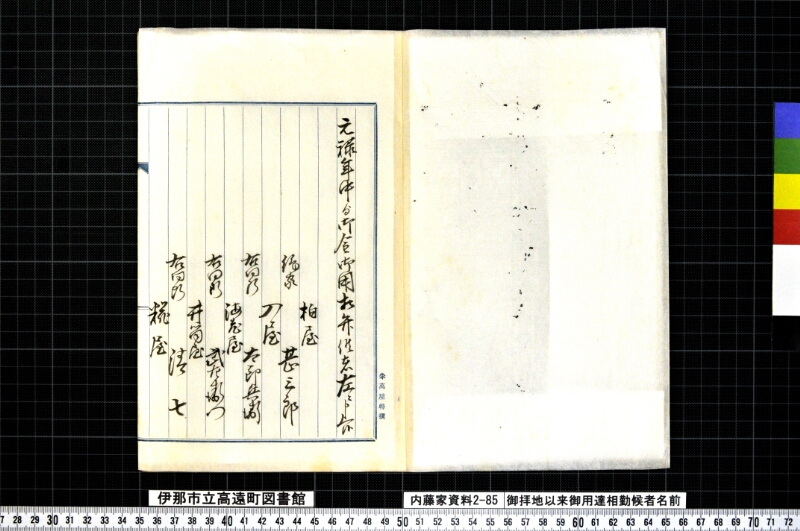 元禄年中ゟ御金御用相弁候者左ニ記
柏屋
絶家 甚三郎
入屋
右同断 太郎兵衛
海老屋
右同断 武左衛門
井筒屋
右同断 清七
糀屋
伊那市立高遠町図書館
内藤家資料2-85 御拝地以来御用達相勤候者名前
27 28 29 30 31 32 33 34 35 36 37 38 39 40 41 42 43 44 45 46 47 48 49 50 51 52 53 54 55 56 57 58 59 60 61 62 63 64 65 66 67 68 69 70 71 72